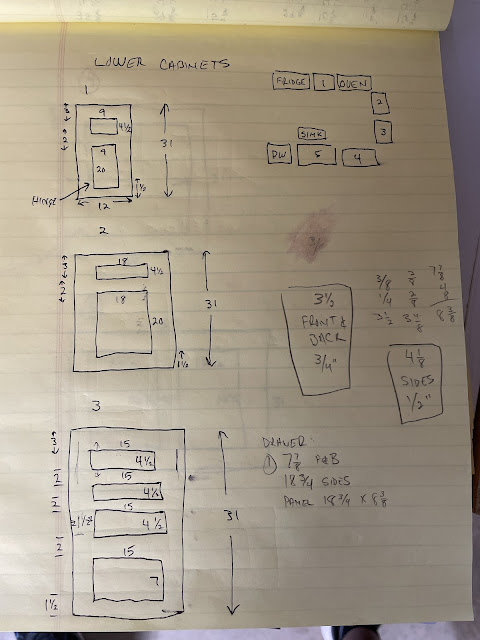 LOWER CABINETS
1
3
2
9
4 1/2
9
20
31
HINGE
1 1/2
12
FRIDGE
1
OVEN
2
3
SINK
DW
5
4
2
3
2
18
4 1/2
18
20
31
1 1/2
3/8
1/4
3 1/2
7 7/8
8 3/8
3 1/2
FRONT &
BACK
3/4"
4 1/8
SIDES
1/2"
3
3
2
2
2 1/2
2
1 1/2
15
4 1/2
15
4 1/2
15
4 1/2
15
7
31
DRAWER:
1 7 7/8 F&B
18 3/4 SIDES
PANEL 18 3/4 x 8 3/8